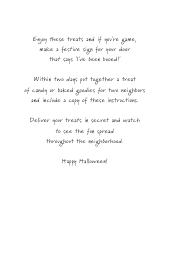 Enjoy these treats and if you're game,
make a festive sign for your door
that says "I've been booed!"
Within two days put together a treat
of candy or baked goodies for two neighbors
and include a copy of these instructions.
Deliver your treats in secret and watch
to see the fun spread
throughout the neighborhood.
Happy Halloween!